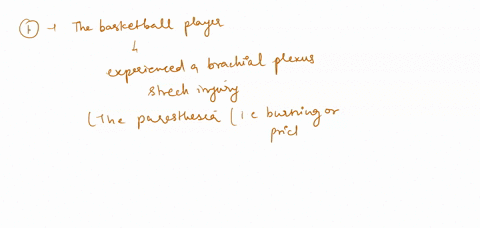 ① → The basketball player
↳
experienced a brachial plexus
strech injury
(The paresthesia (i e burning or
pricl